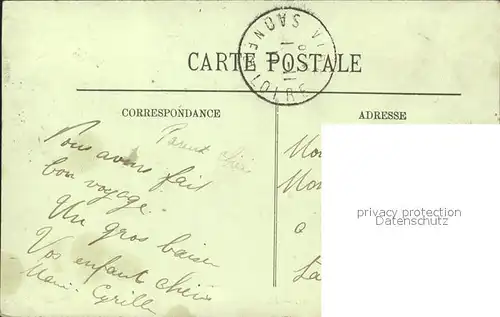 CARTE POSTALE
SAONE
LOIRE
CORRESPONDANCE
ADRESSE
Parent chéris
Nous avons fait
bon voyage.
Un gros baiser
Vos enfant chéris
Cyrille
Mon
Mon
a
La
privacy protection
Datenschutz